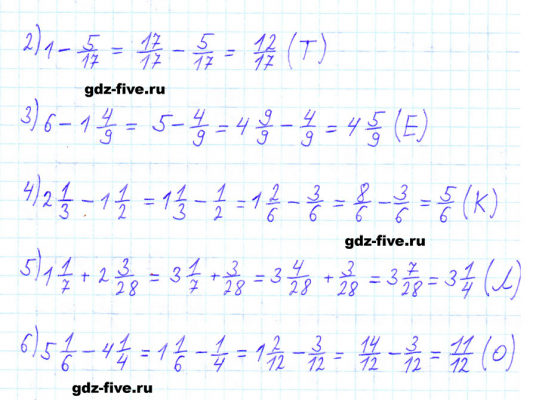 2) 1 - 5/17 = 17/17 - 5/17 = 12/17 (Т)
gdz-five.ru
3) 6 - 1 4/9 = 5 - 4/9 = 4 9/9 - 4/9 = 4 5/9 (Е)
4) 2 1/3 - 1 1/2 = 1 1/3 - 1/2 = 1 2/6 - 3/6 = 8/6 - 3/6 = 5/6 (К)
gdz-five.ru
5) 1 1/7 + 2 3/28 = 3 1/7 + 3/28 = 3 4/28 + 3/28 = 3 7/28 = 3 1/4 (Л)
6) 5 1/6 - 4 1/4 = 1 1/6 - 1/4 = 1 2/12 - 3/12 = 14/12 - 3/12 = 11/12 (О)
gdz-five.ru